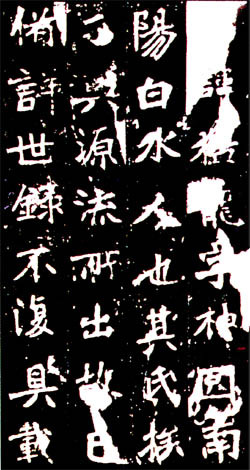 諱猛龍字神冏南
陽白水人也其氏族
源流所出故已
備詳世錄不復具載